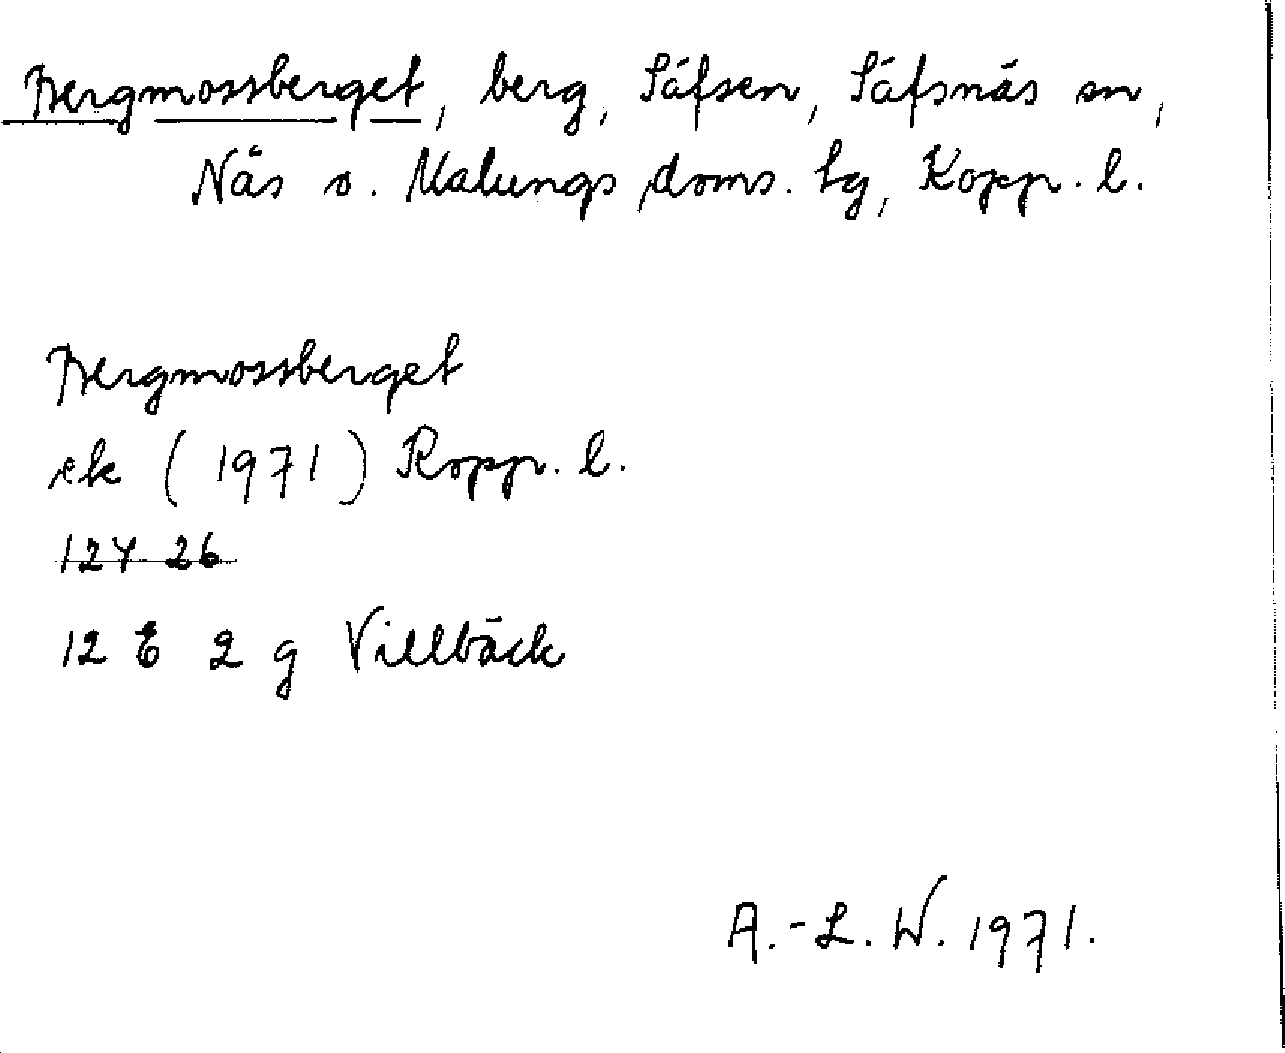 Bergmossberget, berg, Säfsen, Säfsnäs sn,
Näs o. Malungs doms. tg, Kopp. l.
Bergmossberget
ek (1971) Kopp. l.
124 26
12 E 2 g Villbäck
A.-L. W. 1971.